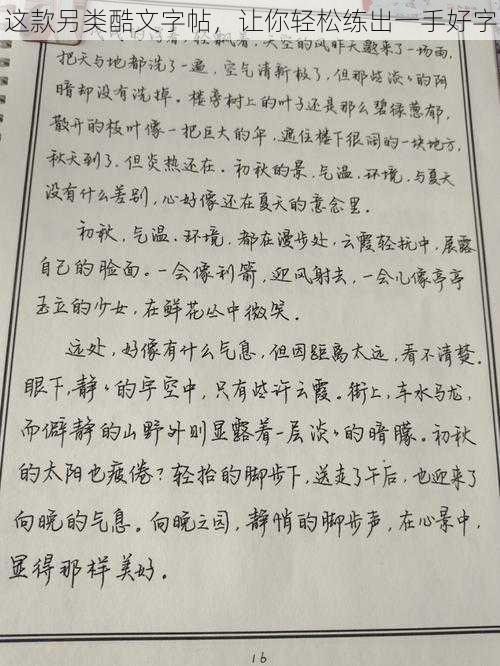 这款另类酷文字帖，让你轻松练出一手好字
轻飘着，天空的风昨天邀来了一场雨，
把天与地都洗了一遍，空气清新极了，但那些淡〃的阴
暗却没有洗掉。楼旁树上的叶子还是那么碧绿葱郁，
散开的枝叶像一把巨大的伞，遮住楼下很阔的一块地方，
秋天到了，但炎热还在。初秋的景，气温，环境，与夏天
没有什么差别，心好像还在夏天的意念里。
初秋，气温，环境，都在漫步处，云霞轻抚中，展露
自己的脸面。一会像利箭，迎风射去，一会儿像亭亭
玉立的少女，在鲜花丛中微笑。
远处，好像有什么气息，但因距离太远，看不清楚。
眼下，静〃的宇空中，只有些许云霞。街上，车水马龙，
而僻静的山野外则显露着一层淡〃的暗朦。初秋
的太阳也疲倦？轻抬的脚步下，送走了午后，也迎来了
向晚的气息。向晚之园，静悄的脚步声，在心景中，
显得那样美好。
16